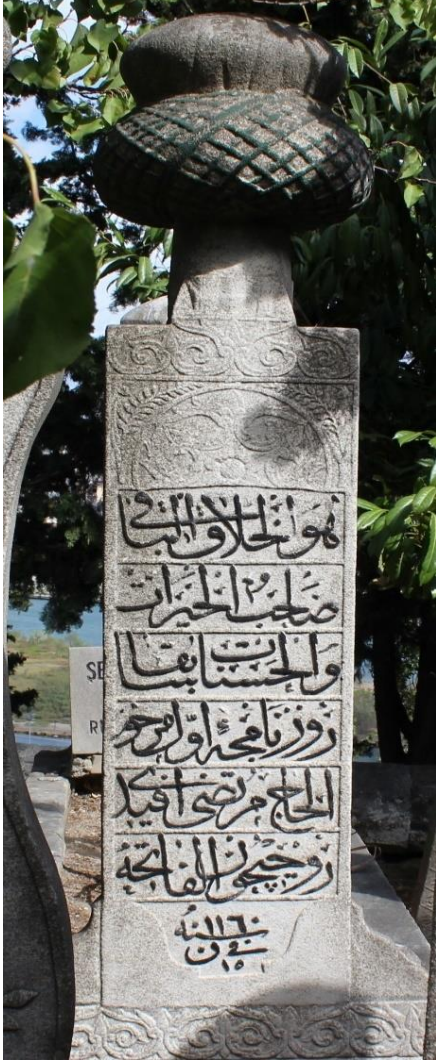 هو الخلاق الباقي
صاحب الخيرات
والحسنات سابقا
روزنامجهٔ اول مرحوم
الحاج مرتضى افندى
روحيچون الفاتحه
سنه ١١٦٠